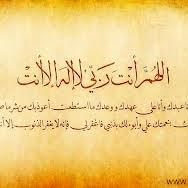 اللهم أنت ربي لا إله إلا أنت
عبدك وأنا على عهدك ووعدك ما استطعت أعوذ بك من شر ما
بنعمتك علي وأبوء لك بذنبي فاغفر لي فإنه لا يغفر الذنوب إلا
www.